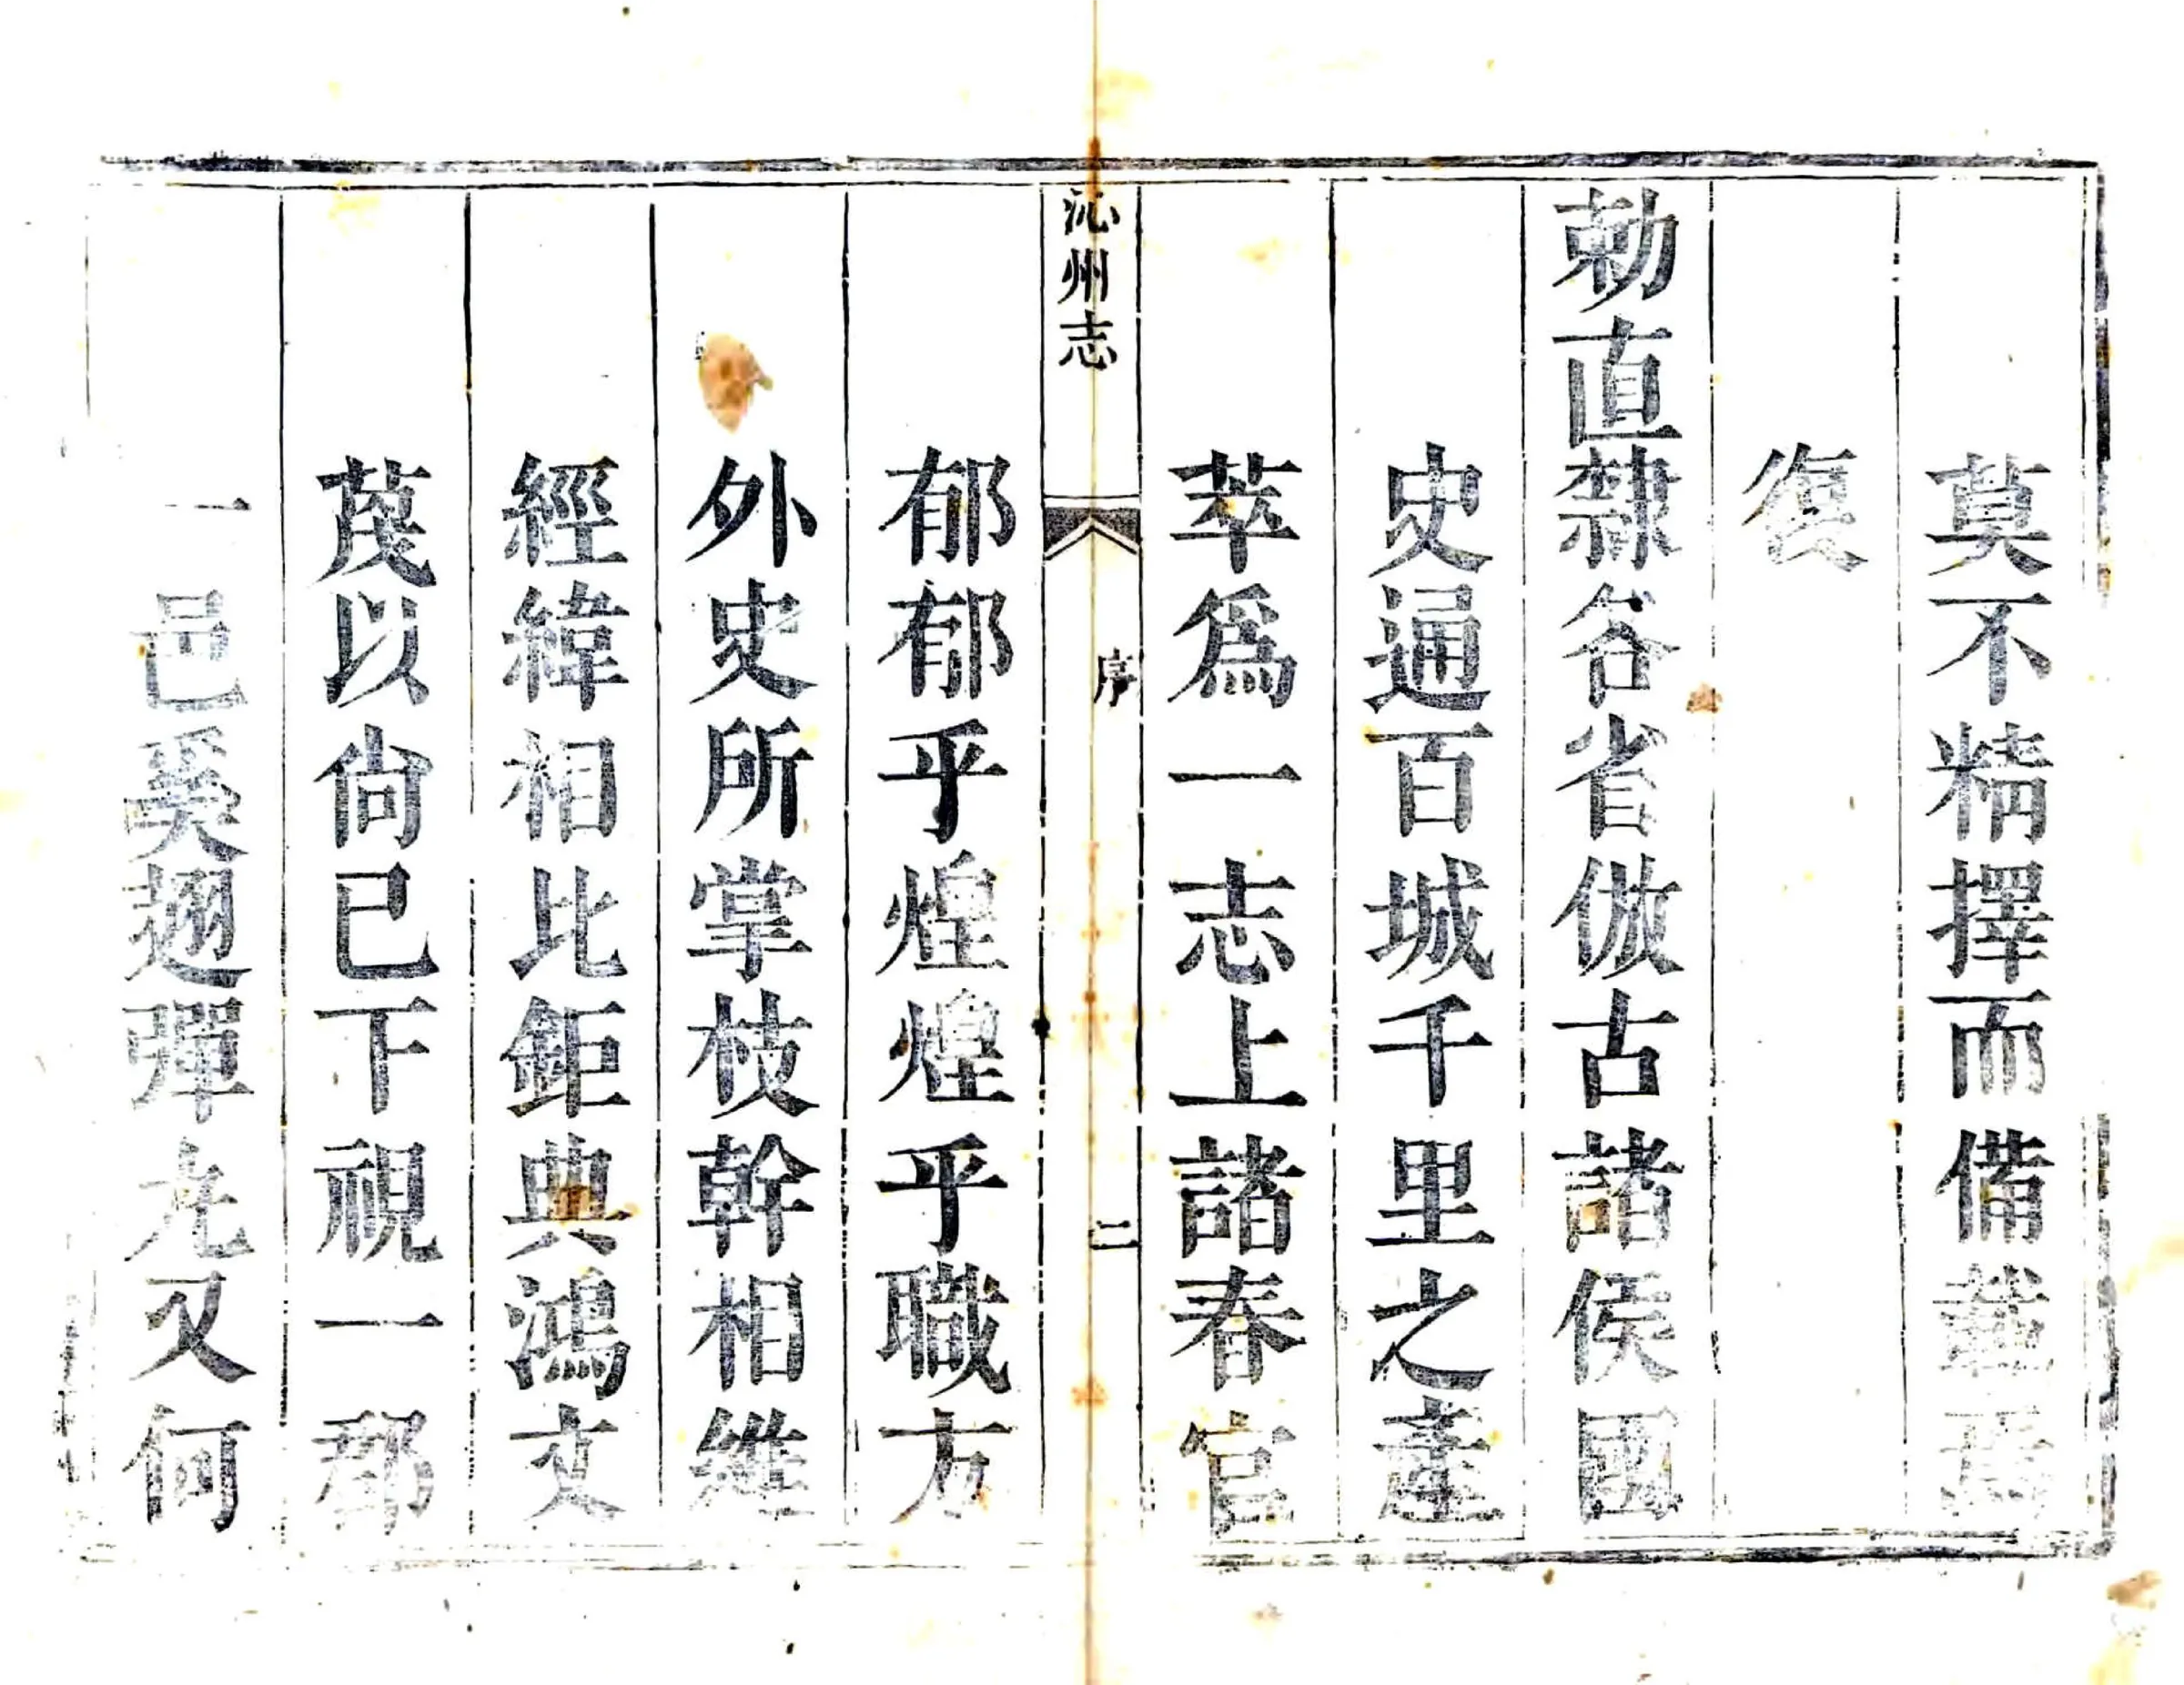 莫不精擇而備載焉
復
勅直隸各省倣古諸侯國
史通百城千里之產
萃爲一志上諸春官
沁州志
序
二
郁郁乎煌煌乎職方
外史所掌枝幹相維
經緯相比鉅典鴻文
蔑以尙已下視一郡
一邑奚翅彈丸又何